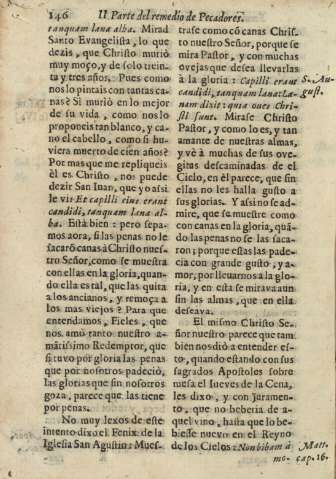 146 II. Parte del remedio de Pecadores.
tanquam lana alba. Mirad
Santo Evangelista, lo que
dezis, que Christo murió
muy moço, y de solo trein-
ta y tres años. Pues como
nos lo pintais con tantas ca-
nas? Si murió en lo mejor
de su vida, como nos lo
proponeis tan blanco, y ca-
no el cabello, como si hu-
viera muerto de cien años?
Por mas que me repliqueis
èl es Christo, nos puede
dezir San Iuan, que yo assi
le vi: Et capilli eius erant
candidi, tanquam lana al-
ba. Està bien: pero sepa-
mos aora, si las penas no le
sacarō canas à Christo nues-
tro Señor, como se muestra
con ellas en la gloria, quan-
do ella es tal, que las quita
a los ancianos, y remoça à
los mas viejos? Para que
entendamos, Fieles, que
nos amò tanto nuestro a-
mātissimo Redemptor, que
si tuvo por gloria las penas
que por nosotros padeciò,
las glorias que sin nosotros
goza, parece que las tiene
por penas.
No muy lexos de este
intento dixo el Fenix de la
Iglesia San Agustin: Mues-
trase como cō canas Chris-
to nuestro Señor, porque se
mira Pastor, y con muchas
ovejas que desea llevarlas
à la gloria: Capilli erant
candidi, tanquam lana: La-
nam dixit: quia oves Chri-
sti sunt. Mirase Christo
Pastor, y como lo es, y tan
amante de nuestras almas,
y vè à muchas de sus ove-
gias descaminadas de el
Cielo, en èl parece, que sin
ellas no les halla gusto a
sus glorias. Y assi no se ad-
mire, que se muestre como
con canas en la gloria, quā-
do las penas no se las saca-
ron; porque estas las pade-
cia con grande gusto, y a-
mor, por llevarnos a la glo-
ria, y en esta se mirava aun
sin las almas, que en ella
deseava.
El mismo Christo Se-
ñor nuestro parece que tam
bien nos diò a entender es-
to, quando estando con sus
sagrados Apostoles sobre
mesa el Iueves de la Cena,
les dixo, y con juramen-
to, que no beberia de a-
quel vino, hasta que lo be-
biesse nuevo en el Reyno
de los Cielos: Non bibam à
mo-
S. Au-
gust.
Matt.
cap. 26.